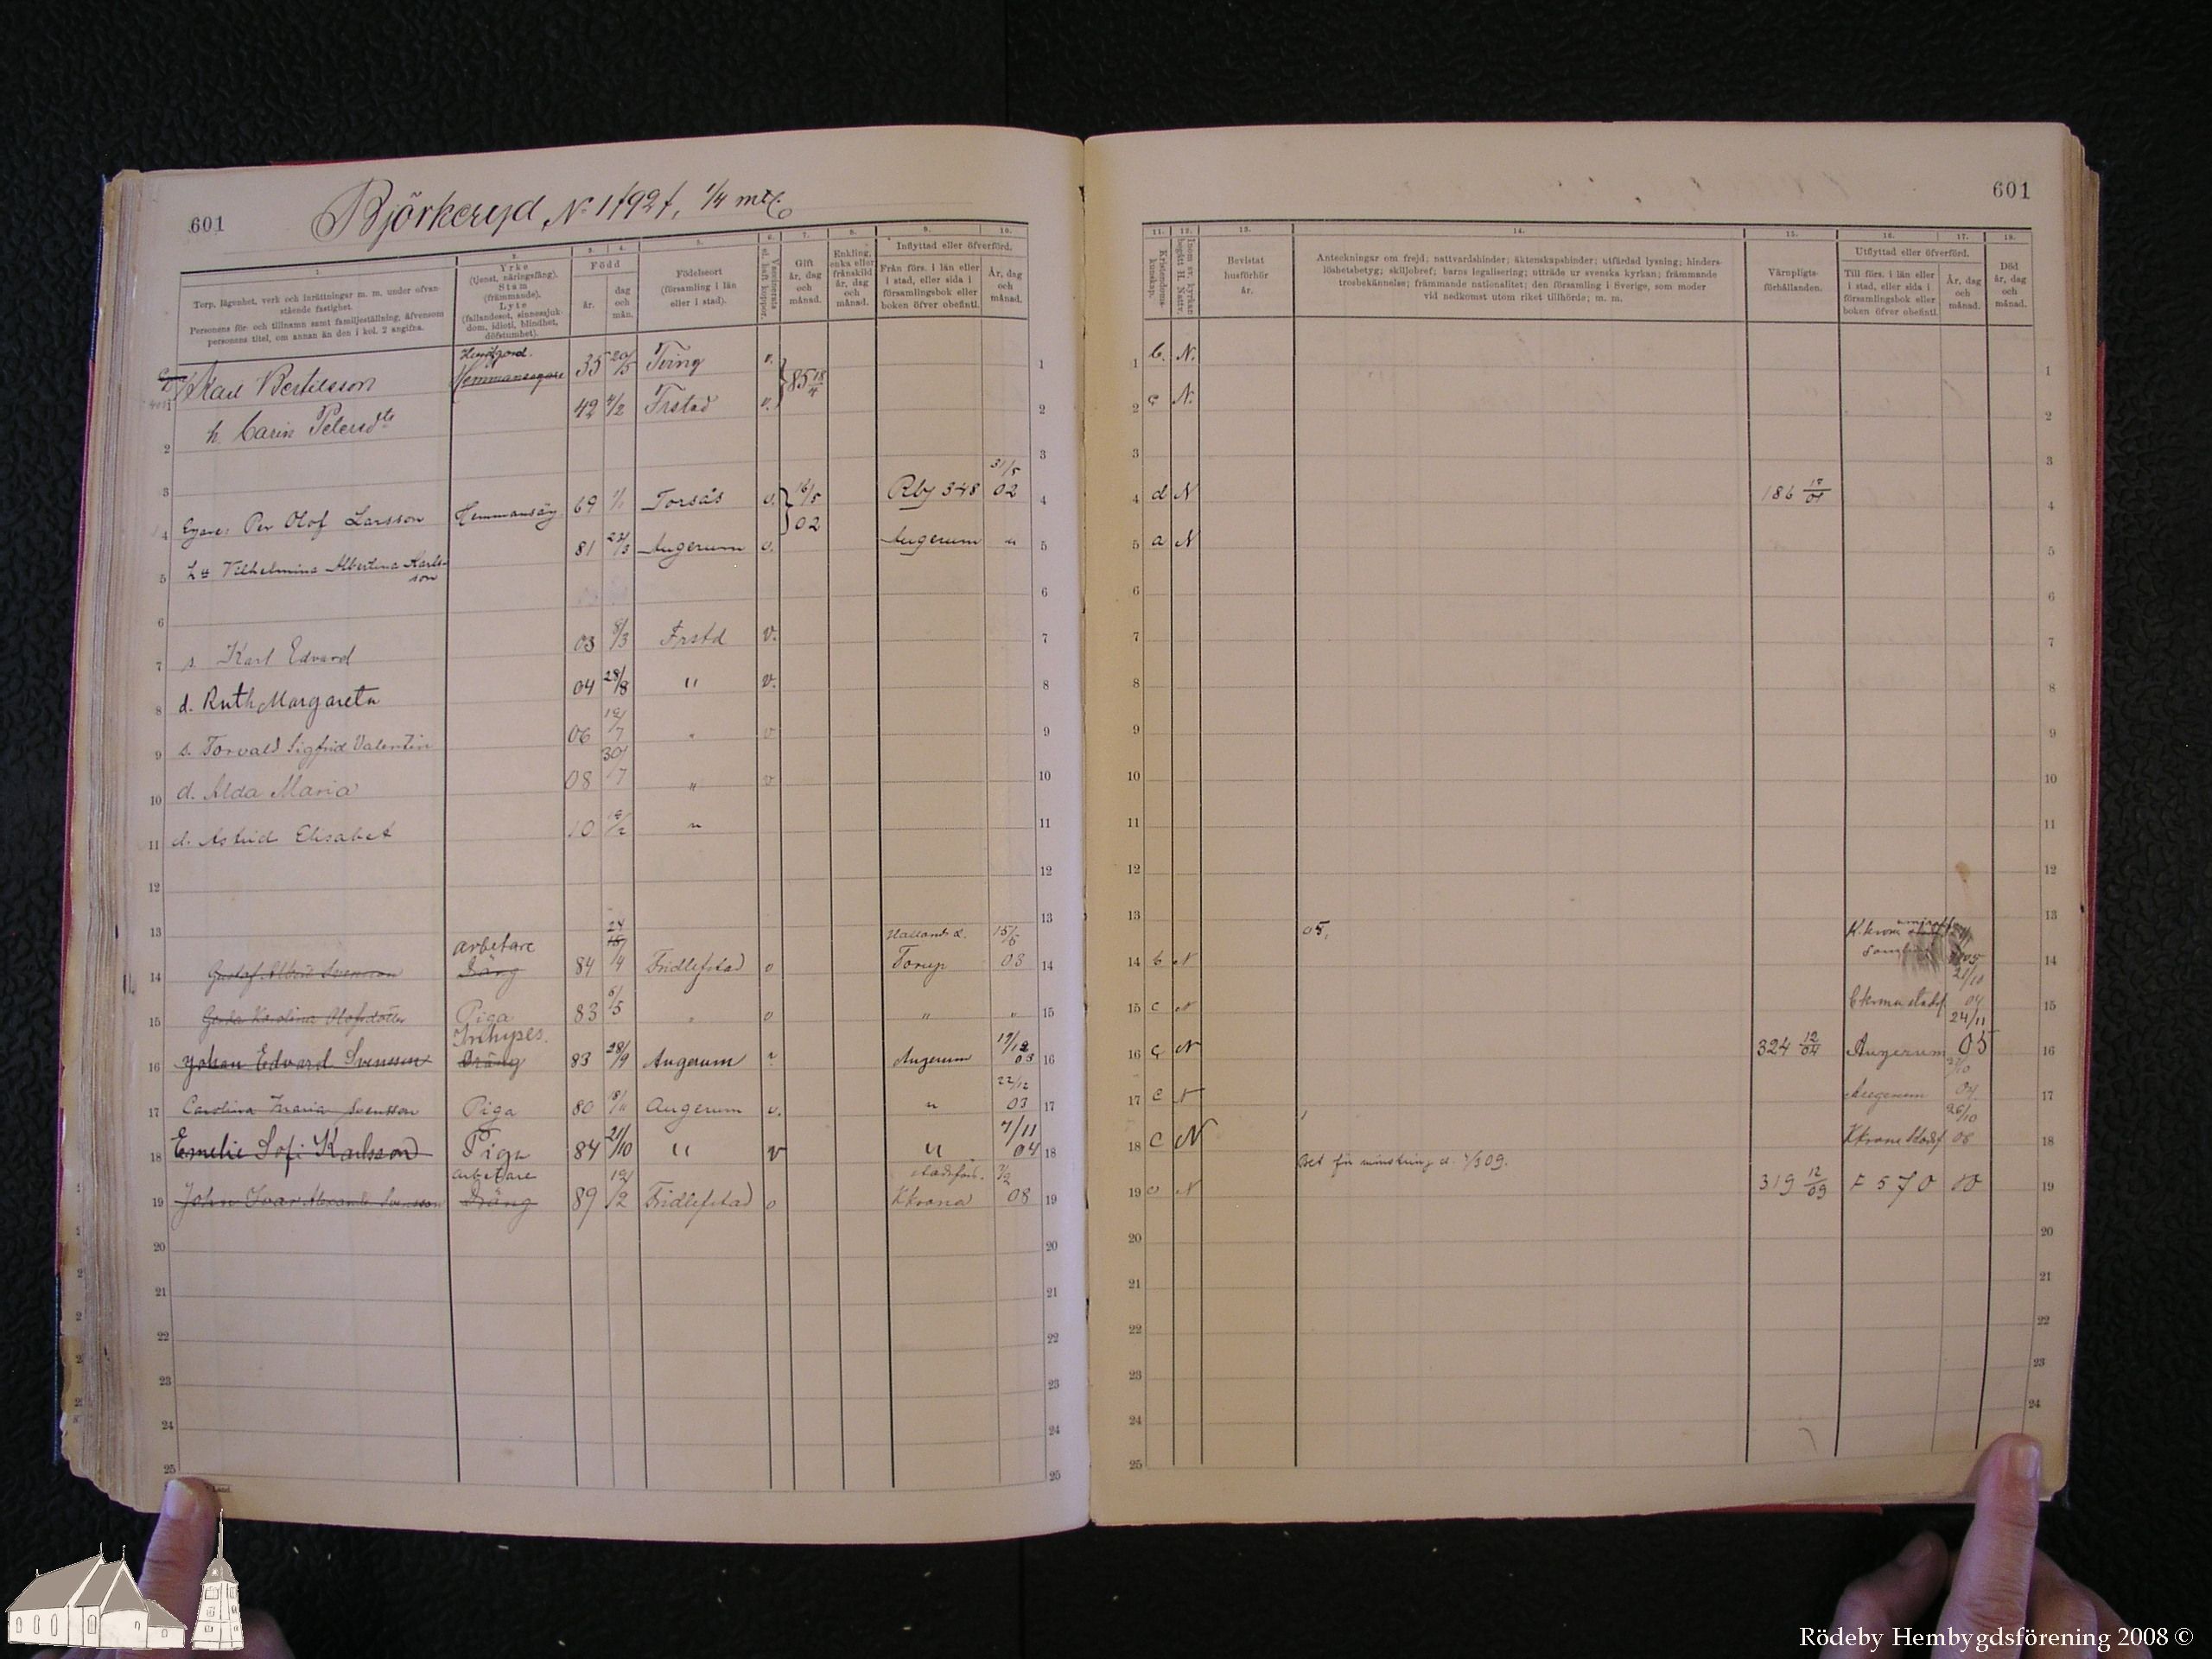 601
Björkeryd No 1 f 92 f, 1/4 mtl.
1. 2. 3. 4. 5. 6. 7. 8. 9. 10.
Torp, lägenhet, verk och inrättningar m. m. under ofvan-
stående fastighet.
Personens för- och tillnamn samt familjeställning, äfvensom
personens titel, om annan än den i kol. 2 angifna.
Yrke
(tjenst, näringsfång).
Stam
(främmande).
Lyte
(fallandesot, sinnessjuk-
dom, idioti, blindhet,
döfstumhet).
Född
år.
dag
och
mån.
Födelseort
(församling i län
eller i stad).
Vaccinerats
el. haft koppor.
Gift
år, dag
och
månad.
Enkling,
enka eller
frånskild
år, dag
och
månad.
Inflyttad eller öfverförd.
Från förs. i län eller
i stad, eller sida i
församlingsbok eller
boken öfver obefintl.
År, dag
och
månad.
1 Karl Bertilsson Hemmansegare 35 20/5 Tving v. 85 18/4 1
2 h. Carin Petersdtr 42 4/2 Frstad v. 2
3 3
4 Egare: Per Olof Larsson Hemmansäg 69 1/1 Torsås v. 16/5 02 Rby 348 31/5 02 4
5 Vilhelmina Albertina Karls-
son 81 Augerum v. Augerum " 5
6 6
7 s. Karl Edvard 03 8/3 Frstd v. 7
8 d. Ruth Margareta 04 28/8 " v. 8
9 s. Torvald Sigfrid Valentin 06 " v 9
10 d. Alda Maria 08 30/7 " v 10
11 d. Astrid Elisabet 10 " 11
12 12
13 13
14 Gustaf Albin Svensson arbetare Dräng 84 24/4 Fridlefstad v Hallands l. Torup 15/5 03 14
15 Gerda Karolina Olofsdotter Piga 83 6/5 " v " " 15
16 Johan Edvard Svensson Dräng 83 28/9 Augerum Augerum 16
17 Carolina Maria Svensson Piga 80 Augerum v. " 22/12 03 17
18 Emelie Sofi Karlsson Piga 84 21/10 " v " 7/11 04 18
19 John Ivar Alexander Svensson arbetare Dräng 89 Fridlefstad v stadsförs. Kkrona 08 19
20 20
21 21
22 22
23 23
24 24
25 25
Lund.
601
11. 12. 13. 14. 15. 16. 17. 18.
Kristendoms-
kunskap.
Inom sv. kyrkan
begått H. Nattv.
Bevistat
husförhör
år.
Anteckningar om frejd; nattvardshinder; äktenskapshinder; utfärdad lysning; hinders-
löshetsbetyg; skiljobref; barns legalisering; utträde ur svenska kyrkan; främmande
trosbekännelse; främmande nationalitet; den församling i Sverige, som moder
vid nedkomst utom riket tillhörde; m. m.
Värnpligts-
förhållanden.
Utflyttad eller öfverförd.
Till förs. i län eller
i stad, eller sida i
församlingsbok eller
boken öfver obefintl.
År, dag
och
månad.
Död
år, dag
och
månad.
1 b. N. 1
2 c N. 2
3 3
4 d N 186 4
5 a N 5
6 6
7 7
8 8
9 9
10 10
11 11
12 12
13 05. 13
14 b N K.krona 14
15 c N 21/11 04 15
16 c N 324 12/04 Augerum 24/11 05 16
17 c N Augerum 04 17
18 c N 26/10 08 18
Bet för minskning d. 09.
19 c N 319 12/09 F 570 19
20 20
21 21
22 22
23 23
24 24
25
Rödeby Hembygdsförening 2008 ©